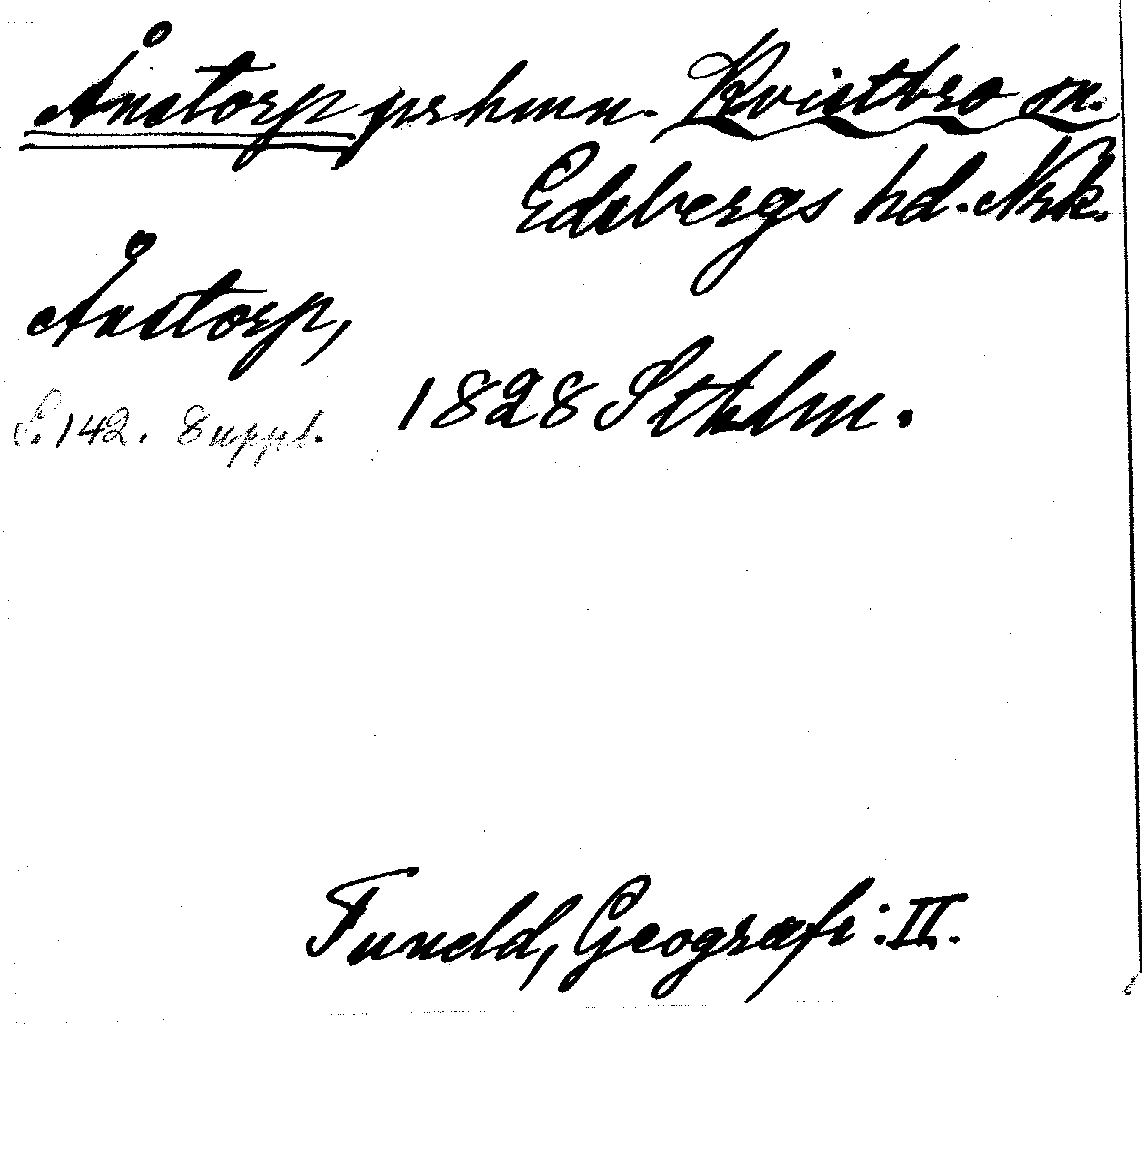 Ånstorp pr hmn. Kvistbro sn.
Edsbergs hd. Nrk.
Ånstorp,
S. 142. Suppl. 1828 Sthlm.
Tuneld, Geografi: II.